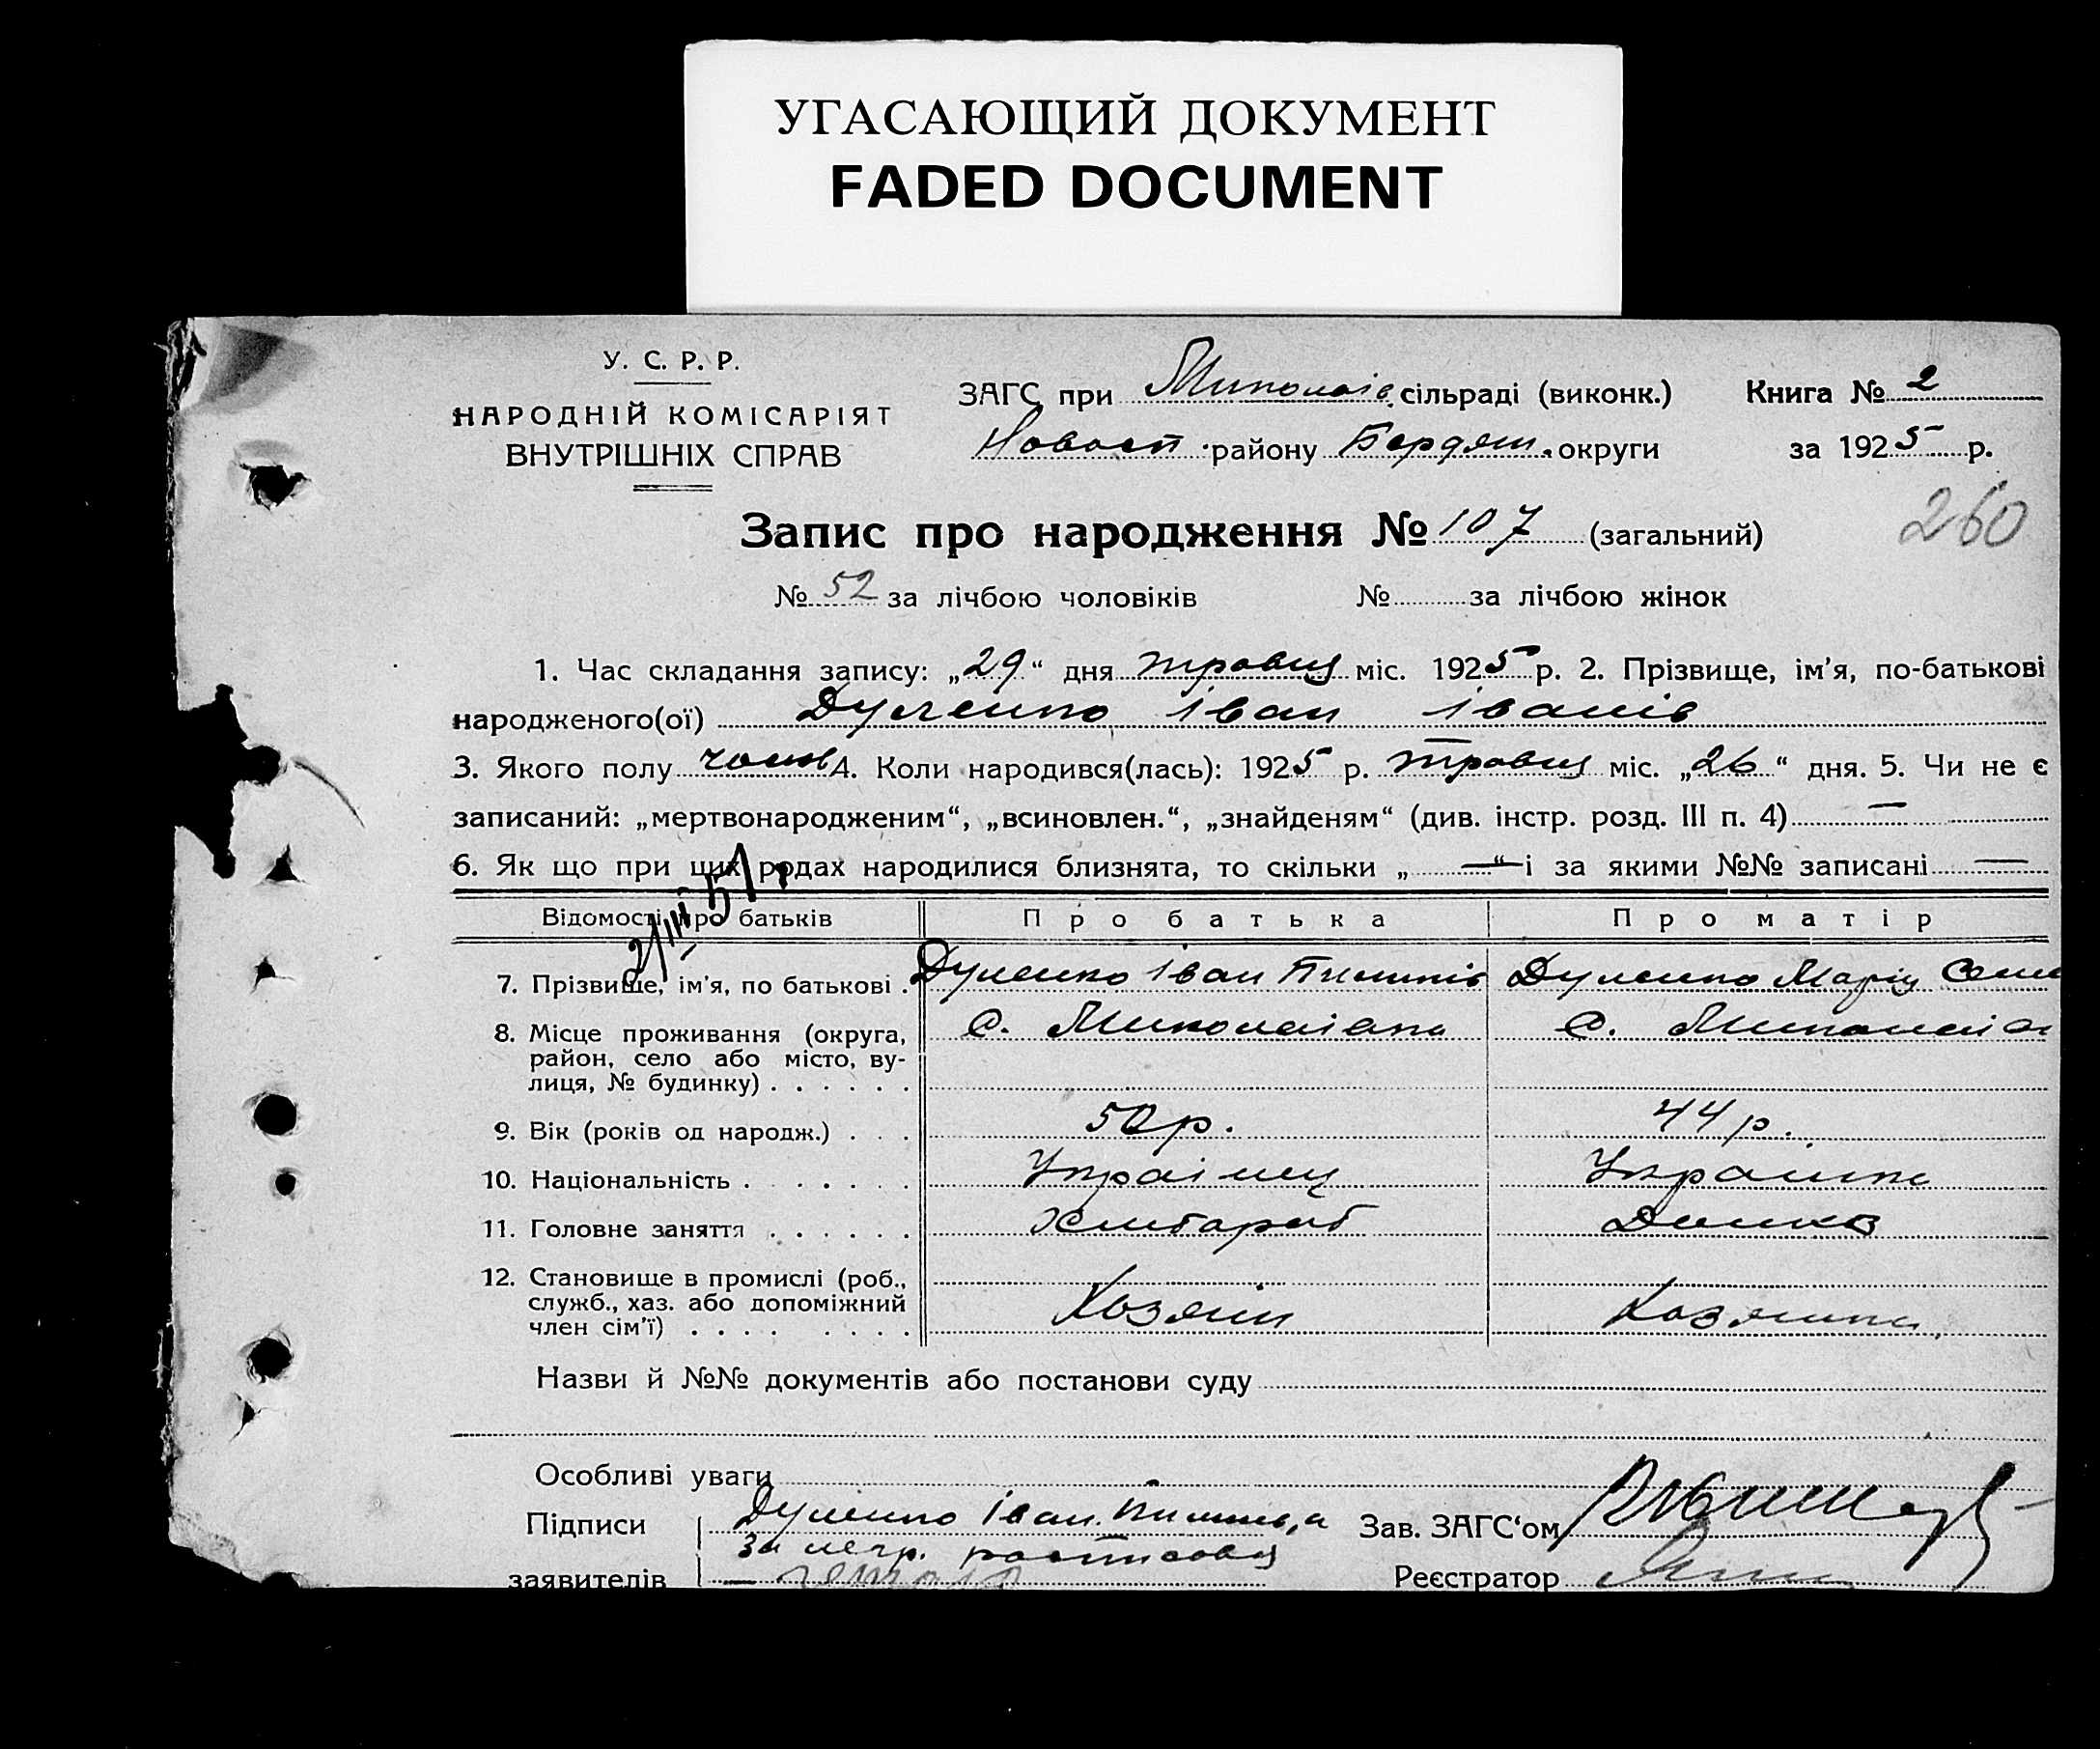 УГАСАЮЩИЙ ДОКУМЕНТ
FADED DOCUMENT
У. С. Р. Р.
НАРОДНІЙ КОМІСАРІЯТ
ВНУТРІШНІХ СПРАВ
ЗАГС при Миколаїв. сільраді (виконк.)
Новосп району Бердян. округи
Книга № 2
за 1925 р.
Запис про народження № 107 (загальний)
260
№ 52 за лічбою чоловіків № за лічбою жінок
1. Час складання запису: „29“ дня травня міс. 1925 р. 2. Прізвище, ім'я, по-батькові
народженого(ої) Дуленко Іван Іванів
3. Якого полу чолов 4. Коли народився(лась): 1925 р. травня міс. „26“ дня. 5. Чи не є
записаний: „мертвонародженим“, „всиновлен.“, „знайденям“ (див. інстр. розд. III п. 4) —
6. Як що при цих родах народилися близнята, то скільки „ — “ і за якими №№ записані —
2/III 51
Відомості про батьків Про батька Про матір
7. Прізвище, ім'я, по батькові . Дуленко Іван Дуленко Марія Семе
8. Місце проживання (округа, с. Миколаівка с. Миколаів
район, село або місто, ву-
лиця, № будинку) . . . . . .
9. Вік (років од народж.) . . . 50 р. 44 р.
10. Національність . . . . . . . Українец Українка
11. Головне заняття . . . . . . Хлібороб Домхоз
12. Становище в промислі (роб.,
служб., хаз. або допоміжний Хозяїн Хозяйка
член сім'ї) . . . . . . . .
Назви й №№ документів або постанови суду
Особливі уваги
Підписи Дуленко Іван а Зав. ЗАГС‘ом
за негр. росписався
заявителів Реєстратор